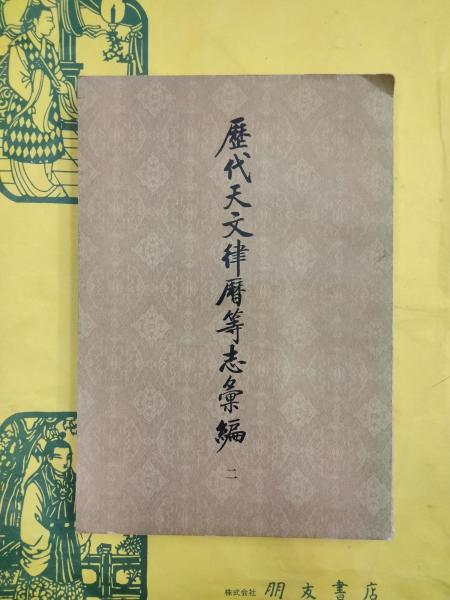 歷代天文律曆等志彙編
二
株式会社 朋友書店